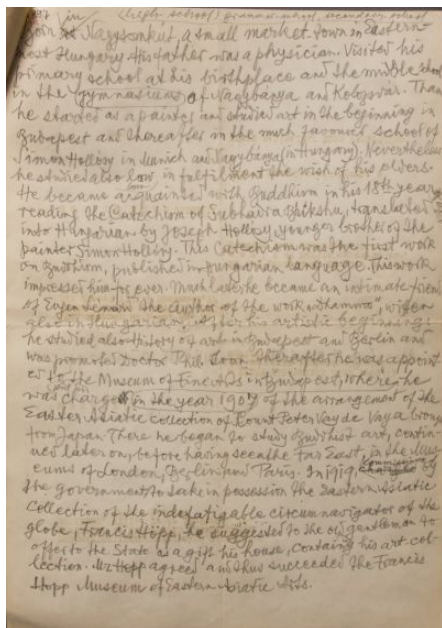 in (high school) grammar-school, secondary school
Born at Nagysomkut, a small market town in Eastern-
most Hungary. His father was a physician. Visited his
primary school at his birthplace and the middle school
in the gymnasiums of Nagybánya and Kolozsvár. Than
he started as a painter and studied art in the beginning in
Budapest and thereafter in the much favoured school of
Simon Hollosy in Munich and Nagybánya (in Hungary). Nevertheless
he studied also law in fulfilment the wish of his elders.
He became acquainted with Buddhism in his 18th year
reading the Catechism of Subhadra Bhikshu, translated
into Hungarian by Joseph Hollosy, younger brother of the
painter Simon Hollosy. This Catechism was the first work
on Buddhism, published in Hungarian language. This work
impressed him for ever. Much later he became an intimate friend
of Eugen Lénárd the author of the work „Dhammo", written
also in Hungarian. After his artistic beginnings
he studied also History of arts in Budapest and Berlin and
was promoted Doctor Phil. Soon thereafter he was appoint-
ed to the Museum of Fine Arts in Budapest, where he
was charged in the year 1907 of the arrangement of the
Eastern Asiatic collection of Count Peter Vay de Vaya brought
from Japan. There he began to study Buddhist art, contin-
ued later on, before having seen the Far East, in the Mus-
eums of London, Berlin and Paris. In 1919,
the government to take in possession the Eastern Asiatic
Collection of the indefatigable circumnavigator of the
globe, Francis Hopp, he suggested to the old gentleman to
offer to the State as a gift his house, containing his art col-
lection. Mr Hopp agreed and thus succeeded the Francis
Hopp Museum of Eastern Asiatic Arts.